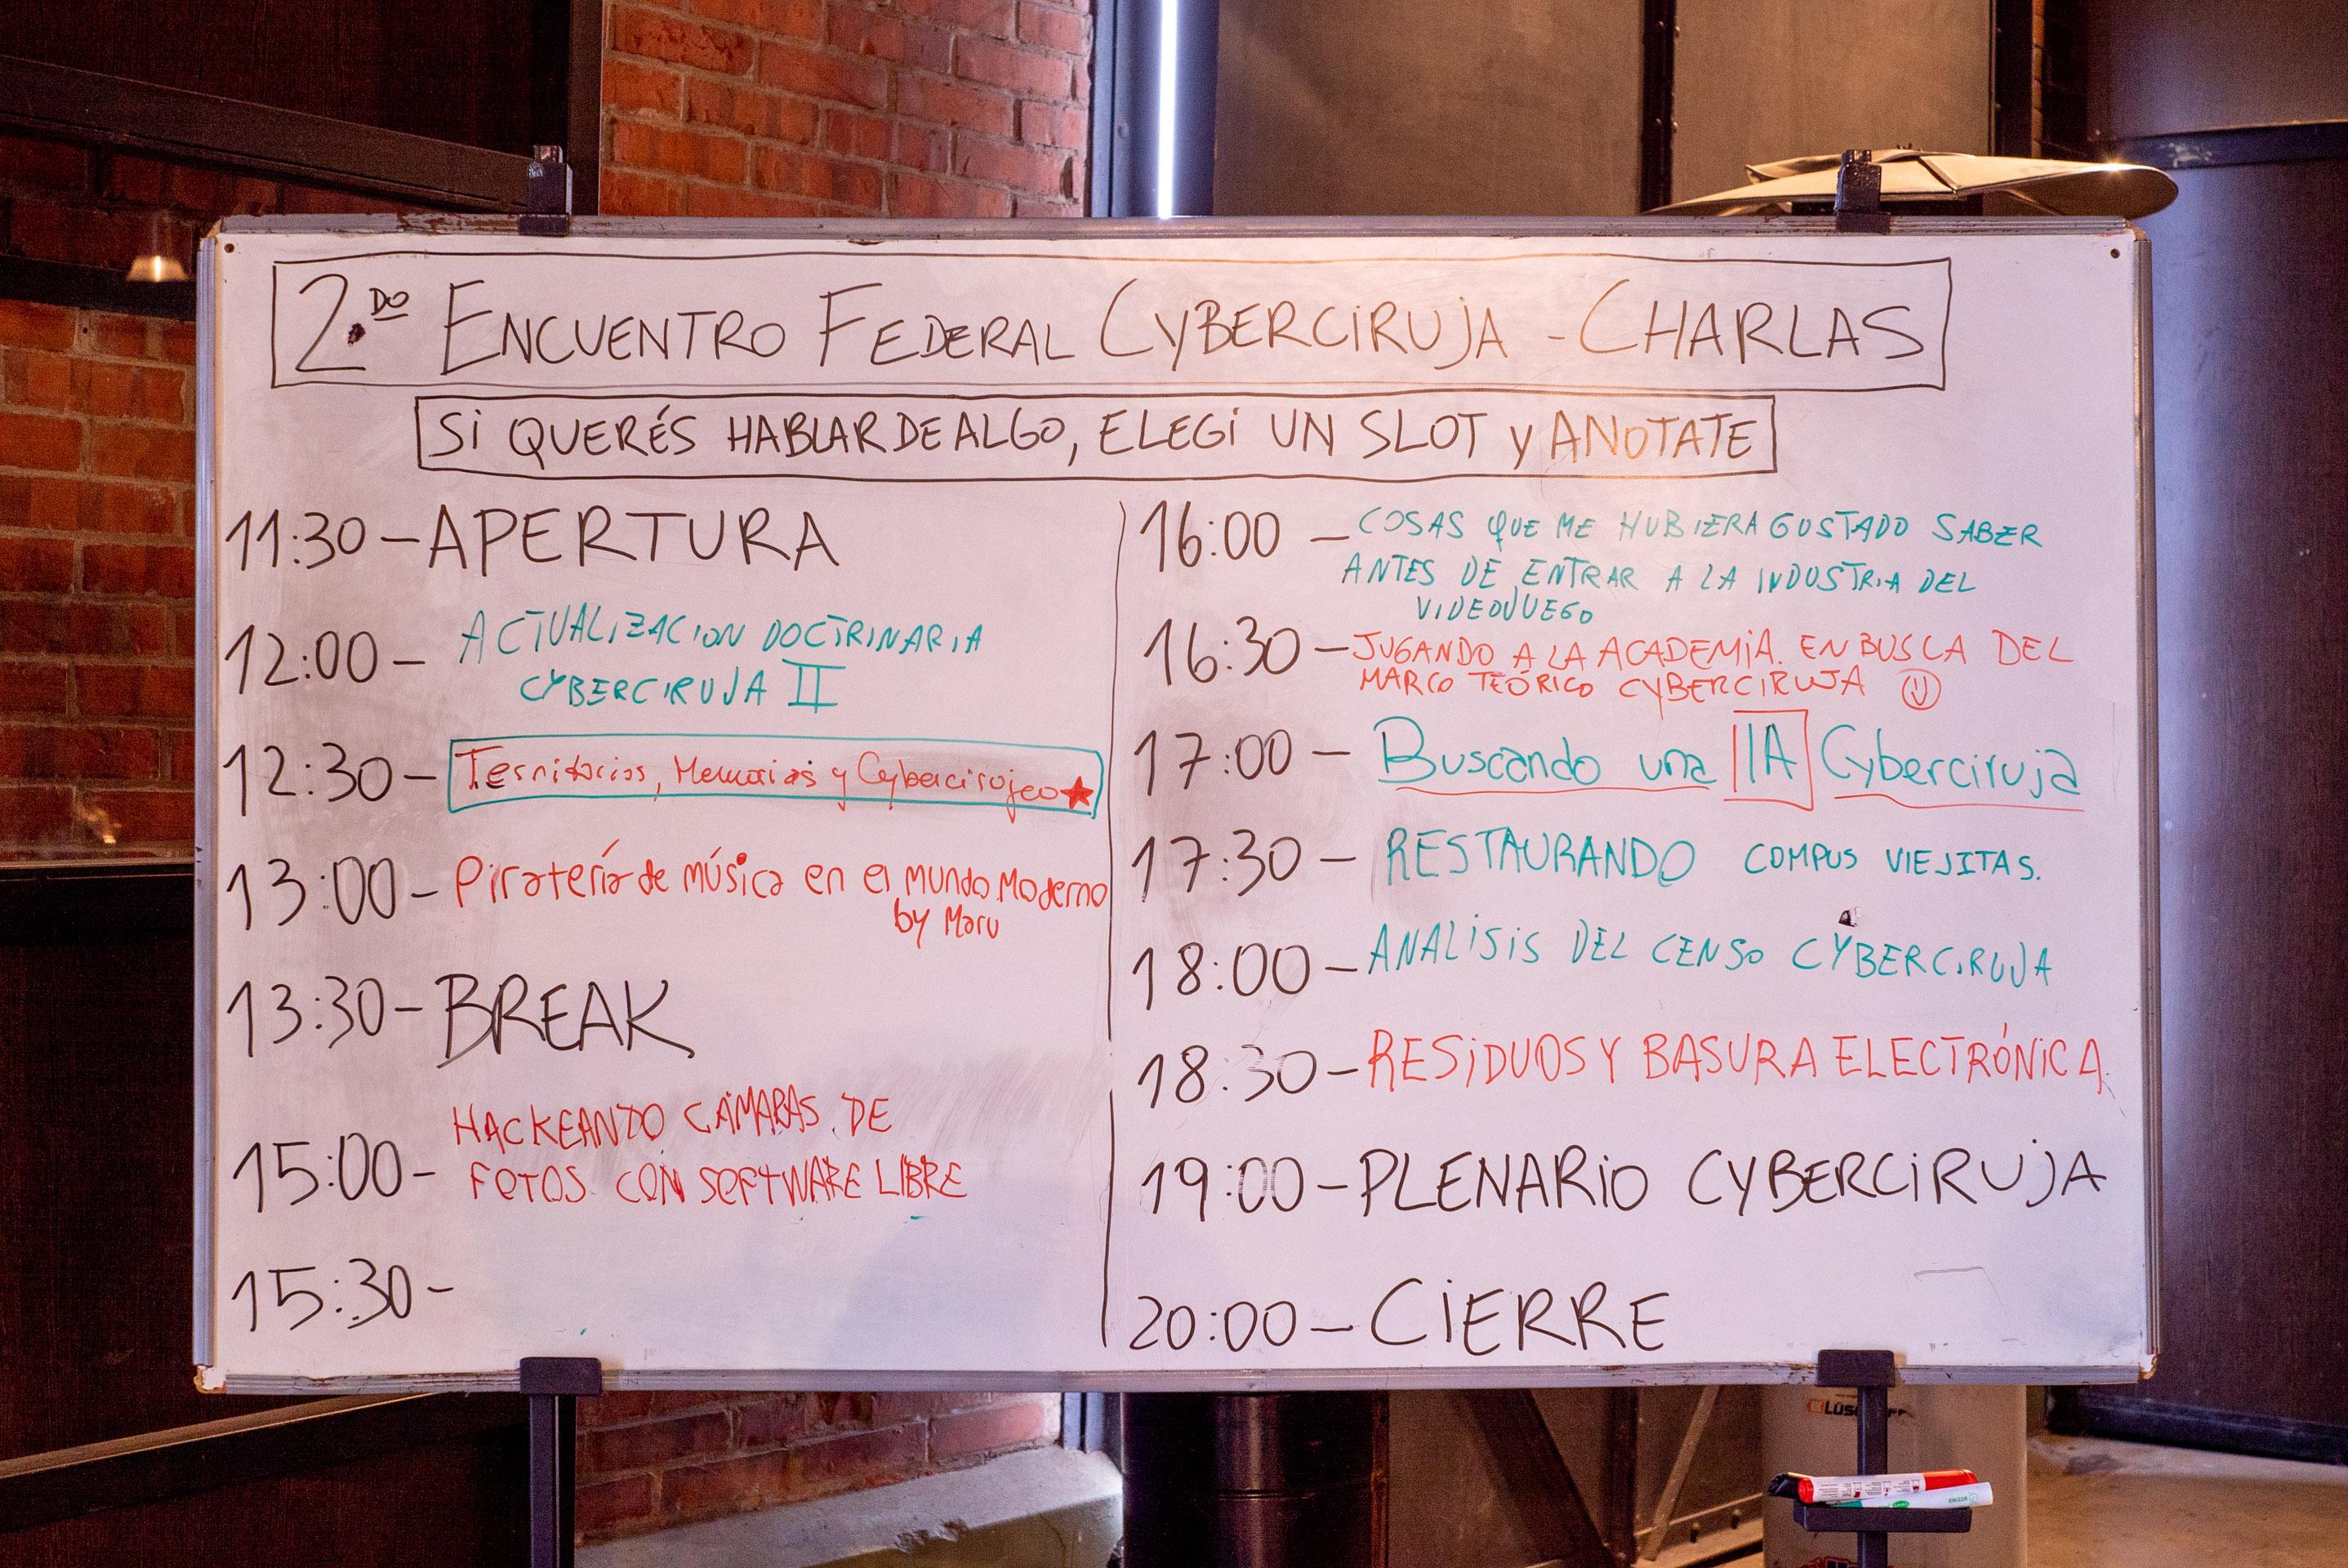 2.DO ENCUENTRO FEDERAL CYBERCIRUJA - CHARLAS
SI QUERÉS HABLAR DE ALGO, ELEGI UN SLOT y ANOTATE
11:30 - APERTURA
12:00 - ACTUALIZACION DOCTRINARIA
CYBERCIRUJA II
12:30 - Territorios, Memorias y Cybercirujeo
13:00 - Piratería de música en el mundo Moderno
by Maru
13:30 - BREAK
15:00 - HACKEANDO CÁMARAS DE
FOTOS CON SOFTWARE LIBRE
15:30 -
16:00 - COSAS QUE ME HUBIERA GUSTADO SABER
ANTES DE ENTRAR A LA INDUSTRIA DEL
VIDEOJUEGO
16:30 - JUGANDO A LA ACADEMIA. EN BUSCA DEL
MARCO TEÓRICO CYBERCIRUJA
17:00 - Buscando una IA Cyberciruja
17:30 - RESTAURANDO COMPUS VIEJITAS.
18:00 - ANALISIS DEL CENSO CYBERCIRUJA
18:30 - RESIDUOS Y BASURA ELECTRÓNICA
19:00 - PLENARIO CYBERCIRUJA
20:00 - CIERRE